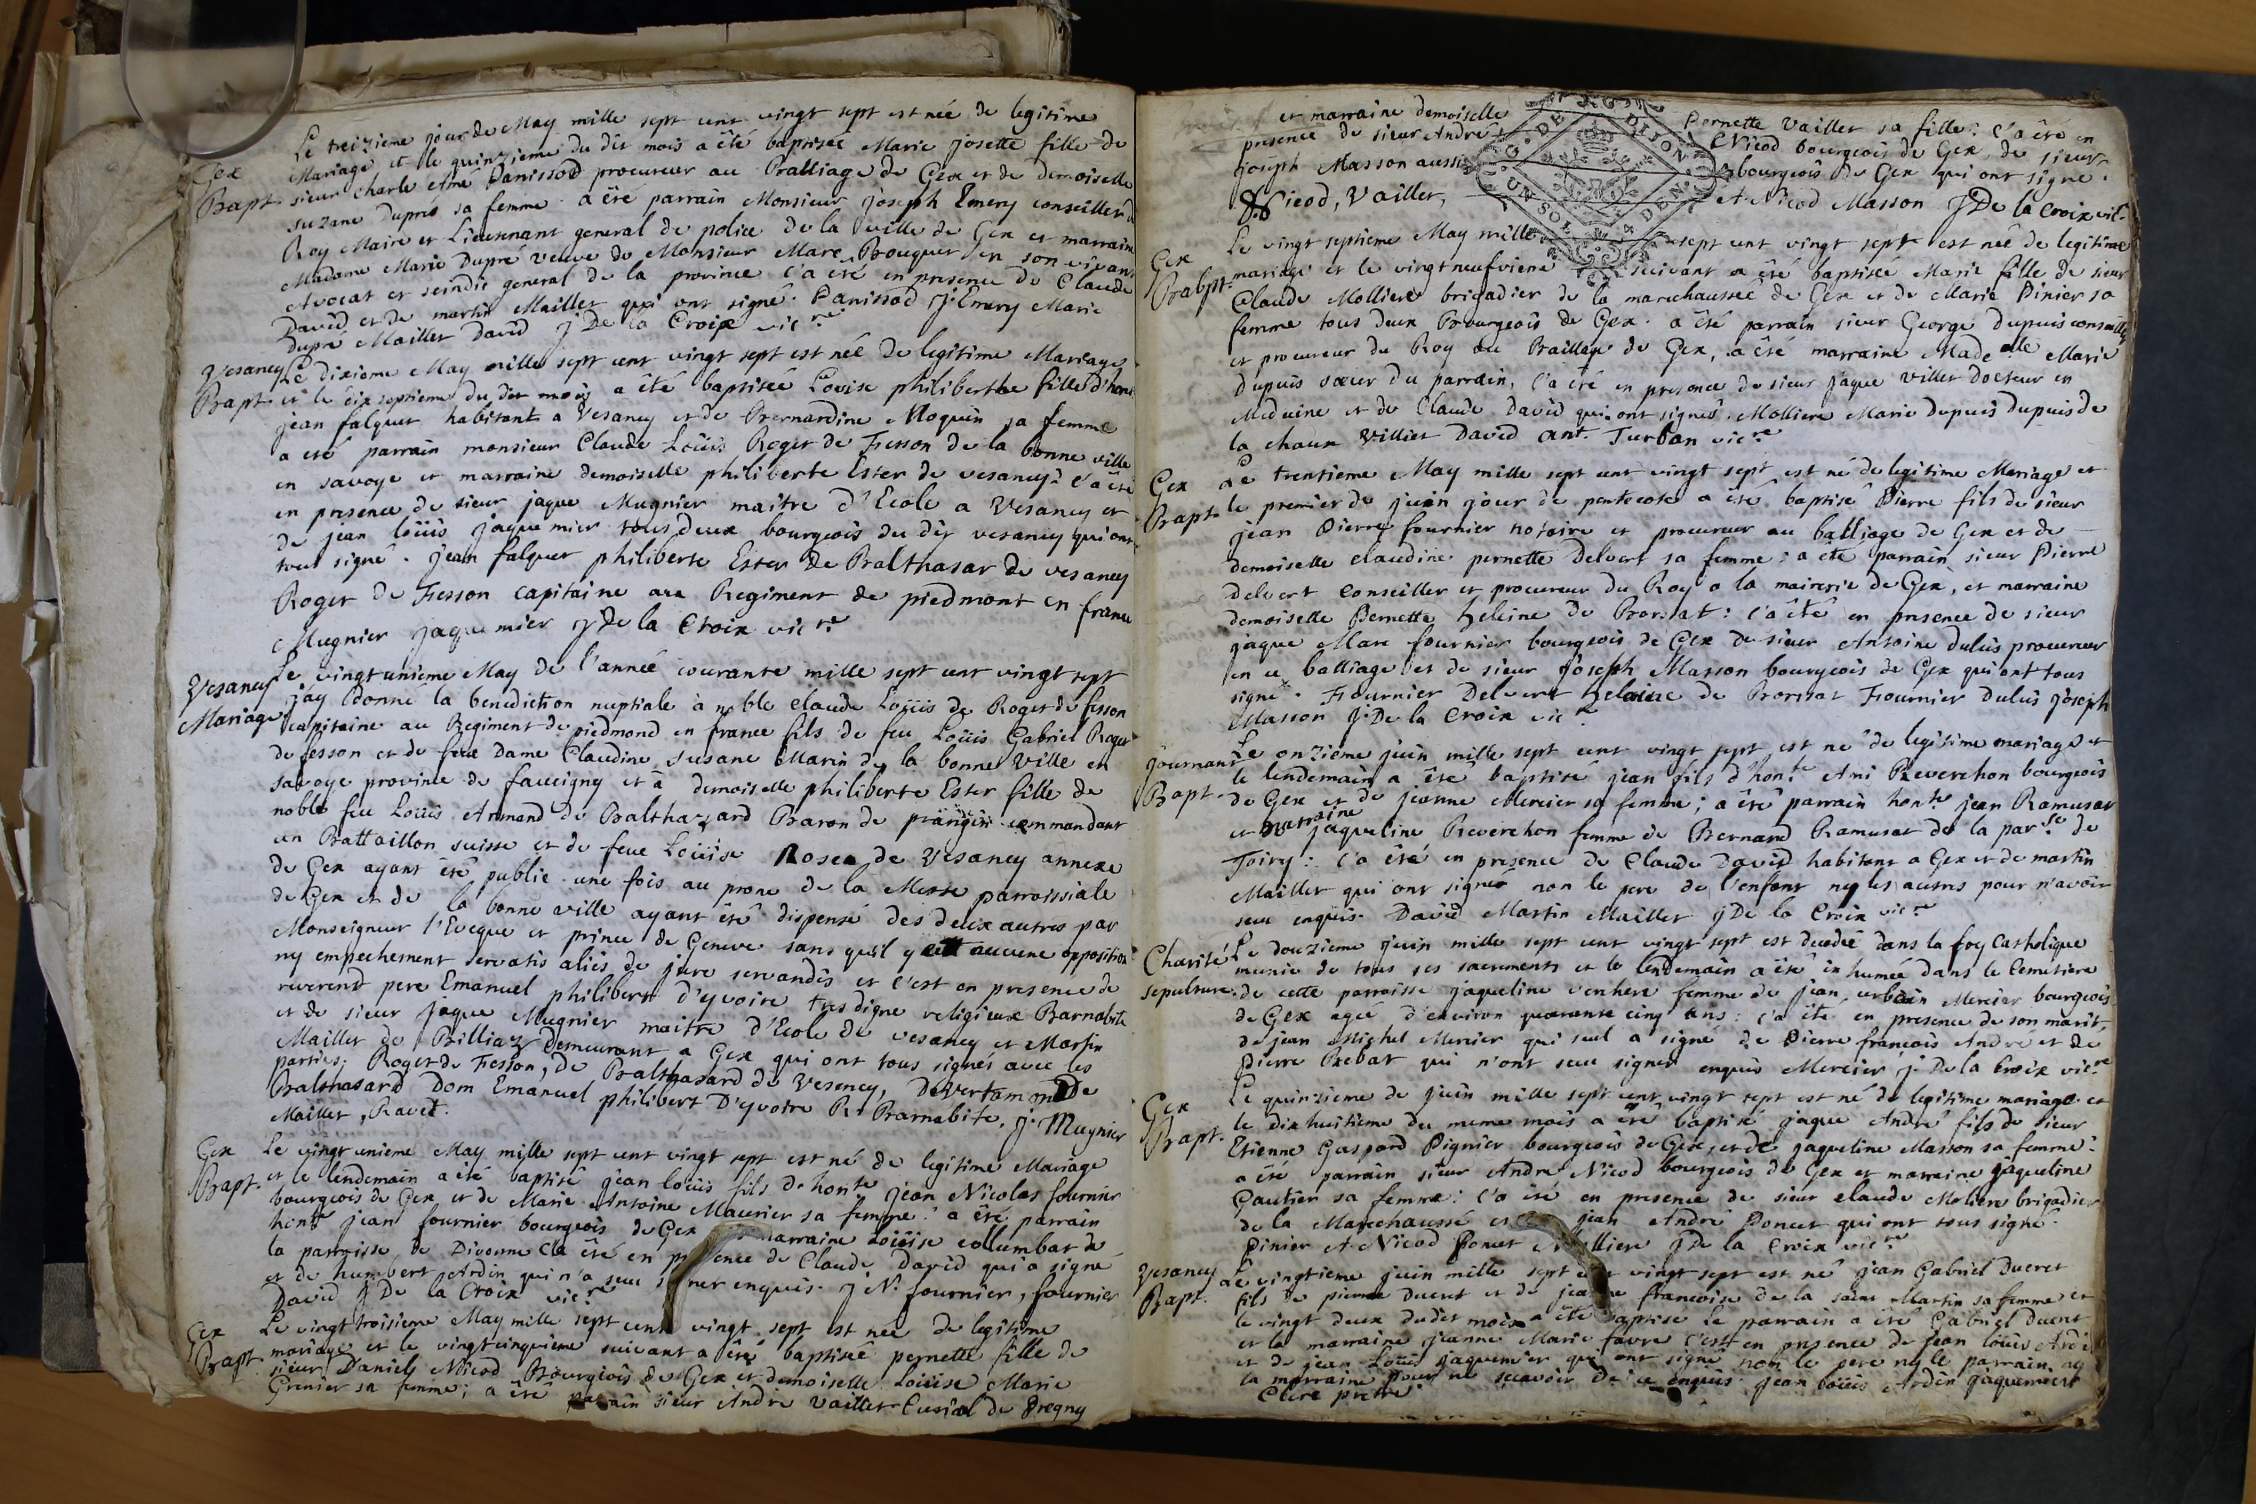 Gex
Bapt.
Le treizieme jour de May mille sept cent vingt sept est née de legitime
Mariage et le quinzieme du dit mois a été baptisée Marie josette fille de
sieur Charle Amé Panissod procureur au Balliage de Gex et de demoiselle
suzane dupré sa femme. a été parrain Monsieur joseph Emery conseiller du
Roy Maire et Lieutenant general de police de la ville de Gex et marraine
Madame Marie Dupré veuve de Monsieur Marc Bouquer en son vivant
Avocat et scindic general de la province c'a été en presence de Claude
David et de martin Maillet qui ont signé. Panissod J. Emery Marie
dupré Maillet David J De la Croix vic.re
Vesancy
Bapt.
Le dixieme May mille sept cent vingt sept est née de legitime Mariage
et le dixseptieme du dit mois a été baptisée Loüise philiberthe fille d'hon.
jean falquet habitant a Vesancy et de Bernardine Moquin sa femme
a été parrain monsieur Claude Loüis Roger de Fesson de la bonne ville
en savoye et marraine demoiselle philiberte Ester de vesancy: c'a été
en presence de sieur jaque Mugnier maitre d'Ecole a Vesancy et
de jean loüis jaquemier tous deux bourgeois du dit vesancy qui ont
tous signé. jean falquet philiberte Ester de Balthasar de vesancy
Roger de Fesson capitaine au Regiment de piedmont en france
Mugnier jaquemier J De la Croix vic.re
Vesancy
Mariage
Le vingtunieme May de l'année courante mille sept cent vingt sept
j'ay donné la benediction nuptiale à noble Claude Loüis de Roger de fesson
capitaine au Regiment de piedmond en france fils de feu Loüis Gabriel Roger
de fesson et de feue Dame Claudine susane Marin de la bonne Ville en
savoye province de faucigny et à demoiselle philiberte Ester fille de
noble feu Loüis Armand de Balthazard Baron de prangin commandant
un Battaillon suisse et de feue Loüise Rosea de Vesancy annexe
de Gex ayant été publié une fois au prone de la Messe parroissiale
de Gex et de la bonne ville ayant été dispensé des deux autres par
Monseigneur l'Eveque et prince de Geneve sans qu'il y eut aucune opposition
ny empechement servatis aliis de jure servandis et c'est en presence de
reverend pere Emanuel philibert d'yvoire tres digne religieux Barnabite
et de sieur jaque Mugnier maitre d'Ecole de vesancy et Martin
Maillet de Billiaz demeurant a Gex qui ont tous signés avec les
parties. Roger de Fesson, de Balthasard de Vesency, De Vertamond De
Balthasard Dom Emanuel philibert D'yvoire R. Barnabite. J. Mugnier
Maillet, Ravet.
Gex
Bapt.
Le vingt unieme May mille sept cent vingt sept est né de legitime Mariage
et le lendemain a été baptisé jean loüis fils d'hon.te jean Nicolas fournier
bourgeois de Gex et de Marie Antoine Maurier sa femme: a été parrain
hon.te jean fournier bourgeois de Gex marraine Loüise collumbar de
la parroisse de Divonne c'a été en presence de Claude David qui a signé
et de humbert Ardin qui n'a sceu signer enquis. J N. fournier, fournier
David J De la Croix vic.re
Gex
Bapt.
Le vingt troisieme May mille sept cent vingt sept est née de legitime
mariage et le vingtcinquieme suivant a été baptisée pernette fille de
sieur Daniel Nicod Bourgeois de Gex et demoiselle Loüise Marie
Grenier sa femme; a été parrain sieur André Vaillet Curial de Pregny
et marraine demoiselle Pernette Vaillet sa fille: c'a été en
presence de sieur André Nicod bourgeois de Gex, de sieur
joseph Masson aussi bourgeois de Gex qui ont signé.
Nicod, Vaillet, A. Nicod Masson J De la Croix vic.
G. DE DIJON
UN SOL 4 DEN.
Gex
Babpt.
Le vingt septieme May mille sept cent vingt sept est née de legitime
mariage et le vingtneufvieme suivant a été baptisée Marie fille de sieur
Claude Molliere brigadier de la marechaussée de Gex et de Marie Pinier sa
femme tous deux Bourgeois de Gex. a été parrain sieur George Dupuis conseiller
et procureur du Roy au Bailliage de Gex, a été marraine Made.lle Marie
Dupuis sœur du parrain, c'a été en presence de sieur jaque Villet Docteur en
Medecine et de Claude David qui ont signés. Molliere Marie Dupuis Dupuis de
la chaux Villiet David Ant. Turban vic.re
Gex
Bapt.
Le trentieme May mille sept cent vingt sept est né de legitime Mariage et
le premier de juin jour de pentecote a été baptisé Pierre fils de sieur
jean Pierre fournier notaire et procureur au balliage de Gex et de
demoiselle claudine pernette Delvert sa femme; a été parrain sieur Pierre
delvert conseiller et procureur du Roy a la mairerie de Gex, et marraine
demoiselle Bernette heleine de Brorsat: c'a été en presence de sieur
jaque Marc fournier bourgeois de Gex de sieur Antoine Duluis procureur
en ce balliage et de sieur joseph Masson bourgeois de Gex qui ont tous
signé. Fournier Delvert helaine de Brorsat Fournier Duluis joseph
Masson J. De la Croix vic.
Journant
Bapt.
Le onzieme juin mille sept cent vingt sept est né de legitime mariage et
le lendemain a été baptisé jean fils d'hon.te Ami Reverchon bourgeois
de Gex et de jeanne Mercier sa femme; a été parrain hon.te jean Ramusat
et marraine jaqueline Reverchon femme de Bernard Ramusat de la par.sse de
Toiry: c'a été en presence de Claude David habitant a Gex et de martin
Maillet qui ont signés non le pere de l'enfant ny les autres pour n'avoir
sceu enquis. David Martin Maillet J De la Croix vic.re
Charité
sepulture.
Le douzieme juin mille sept cent vingt sept est decedée dans la foy Catholique
munie de tous ses sacrements et le lendemain a été inhumée dans le Cemetiere
de cette parroisse jaqueline venhere femme de jean urbain Mercier bourgeois
de Gex agée d'environ quarante cinq ans: c'a été en presence de son marit,
de jean Michel Mercier qui seul a signé de Pierre francois André et de
Pierre Prebat qui n'ont sceu signer enquis Mercier J. De la Croix vic.re
Gex
Bapt.
Le quinzieme de juin mille sept cent vingt sept est né de legitime mariage et
le dix huitieme du meme mois a été baptisé jaque André fils de sieur
Etienne Gaspard Pignier bourgeois de Gex, et de jaqueline Masson sa femme:
a été parrain sieur André Nicod bourgeois de Gex et marraine jaqueline
Gautier sa femme: c'a été en presence de sieur claude Moliere brigadier
de la Marechaussé et jean André Poncet qui ont tous signé.
Pinier A. Nicod Poncet Molliere J De la Croix vic.re
Vesancy
Bapt.
Le vingtieme juin mille sept cent vingt sept est né jean Gabriel Ducret
fils de pierre Ducret et de jeanne francoise de la saint Martin sa femme et
le vingt deux dudit mois a été baptisé le parrain a été Gabriel Ducret
et la marraine jeanne Marie favre c'est en presence de jean loüis Ardi
et de jean Loüis jaquemier qui ont signé non le pere ny le parrain ny
la marraine pour ne scavoir de ce enquis jean loüis Ardin jaquemier
Clerc pretre